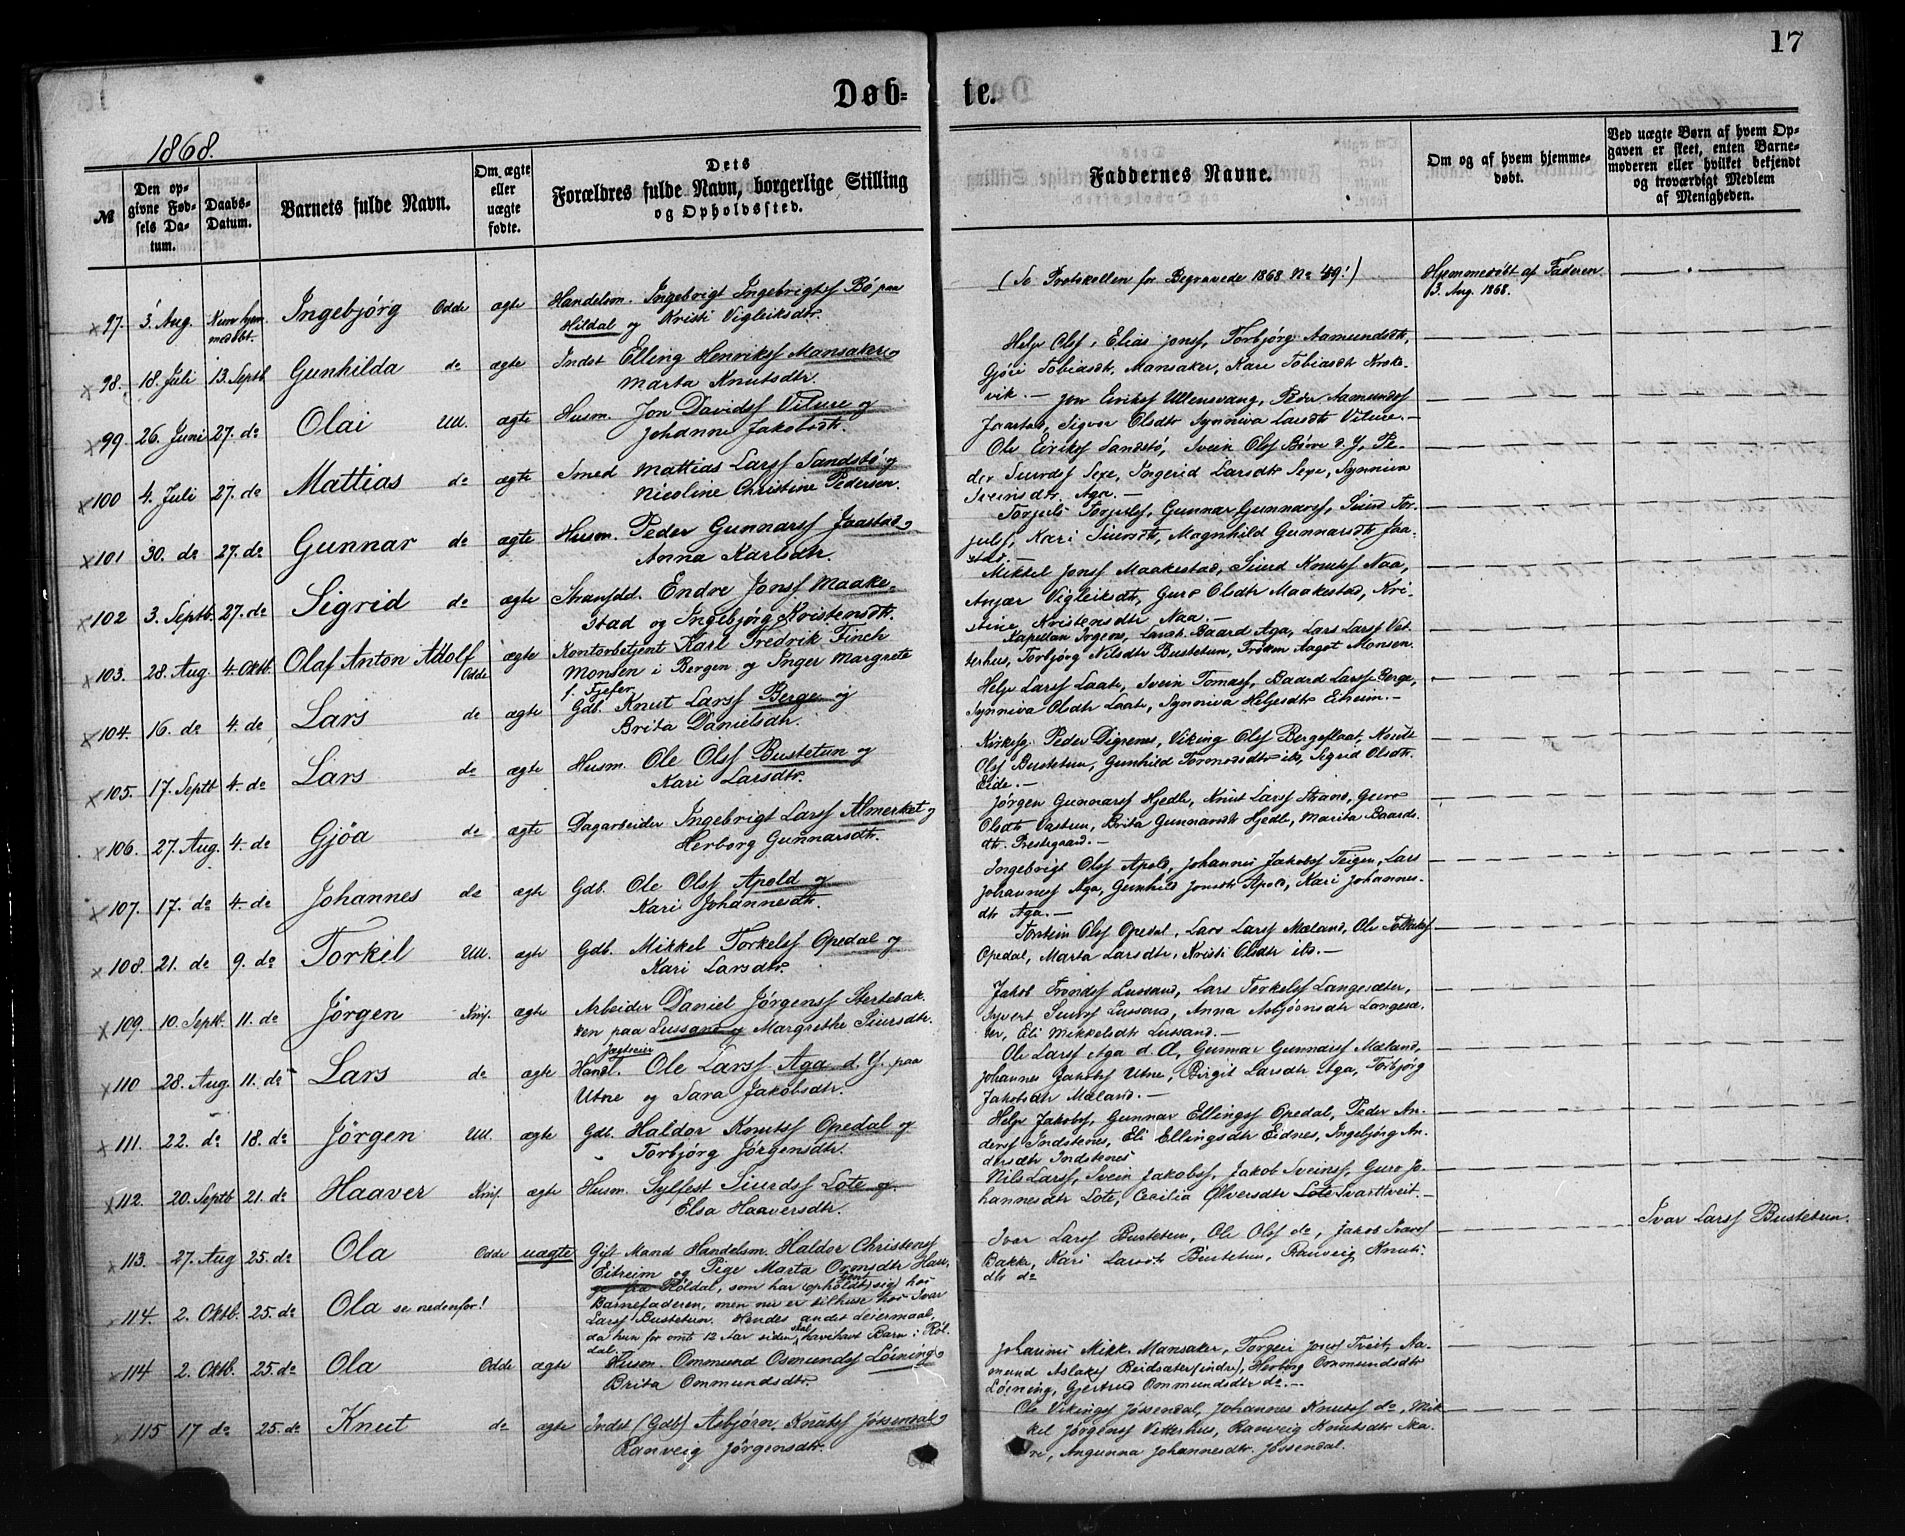 17
Døb-
te.
1868.
№
Den opgivne Fødsels Datum.
Daabs-Datum.
Barnets fulde Navn.
Om ægte eller uægte fødte.
Dets Forældres fulde Navn, borgerlige Stilling og Opholdssted.
Faddernes Navne.
Om og af hvem hjemmedøbt.
Ved uægte Børn af hvem Opgaven er skeet, enten Barnemoderen eller hvilket bekjendt og troværdigt Medlem af Menigheden.
97. 3. Aug. Kun hjemmedøbt. Ingebjørg Odde ægte Handelsm. Ingebrigt Ingebrigtsf Bø paa
Hildal og Kristi Vigleiksdtr.
(Se Protokollen for Begravede 1868 No 49!)
Hjemmedøbt af Faderen
3. Aug. 1868.
98. 18. Juli 13. Septb. Gunhilda do ægte Indst Elling Henriksf Mansaker og
Marta Knutsdtr.
Helje Olsf, Elias Jonsf, Torbjørg Aamundsdtr,
Gjøri Tobiasdtr, Mansaker, Kari Tobiasdtr Kroke-
vik.
99. 26. Juni 27. do Olai Ull. ægte Husm. Jon Davidsf Vilure og
Johanne Jakobsdtr.
Jon Eiriksf Ullensvang, Peder Aamundsf
Jaastad, Sigvor Olsdtr Synniva Larsdtr Vilure.
100 4. Juli 27. do Mattias do ægte Smed Mattias Larsf Sandstø og
Nicoline Christine Pedersen.
Ole Eiriksf Sandstø, Svein Olsf Børve d. Y, Pe-
der Siurdsf Sexe, Ingerid Larsdtr Sexe, Synniva
Sveinsdtr. Aga.
101 30. do 27. do Gunnar do ægte Husm. Peder Gunnarsf Jaastad og
Anna Karlsdtr.
Torjuls Torjulsf, Gunnar Gunnarsf, Siurd Tor-
julsf, Kari Siursdtr, Magnhild Gunnarsdtr Jaa-
stad.
102 3. Septb. 27. do Sigrid do ægte Strandsid. Endre Jonsf Maake-
stad og Ingebjørg Kristensdtr.
Mikkel Jonsf Maakestad, Siurd Knutsf Naa,
Anjær Vigleiksdtr, Guro Olsdtr Maakestad, Kri-
stine Kristensdtr Naa.
103. 28. Aug 4. Oktb. Olaf Anton Adolf Odde ægte Kontorbetjent Karl Fredrik Finch
Monsen i Bergen og Inger Margrete
f. Tjefen
Kapellan Jrgens, Landh. Baard Aga, Lars Larsf Vet-
terhus, Torbjørg Nilsdtr Bustetun, Frøken Aagot Monsen.
104. 16. do 4. do Lars do ægte Gdb. Knut Larsf Berge og
Brita Danielsdtr.
Helje Larsf Laate, Svein Tomasf, Baard Larsf Berge,
Synniva Olsdtr Laate, Synniva Heljesdtr Eitheim.
105. 17. Septb 4. do Lars do ægte Husm. Ole Olsf Bustetun og
Kari Larsdtr.
Kirkesg. Peder Digrenes, Viking Olsf Bergeflaat, Knut
Olsf Bustetun, Gunhild Tormodsdtr ib, Sigrid Olsdtr.
Eide.
106. 27. Aug. 4. do Gjøa do ægte Dagarbeider Ingebrigt Larsf Almerket og
Herborg Gunnarsdtr.
Jørgen Gunnarsf Hjedle, Knut Larsf Strand, Guro
Olsdtr Vastun, Brita Gunnarsdtr Hjedle, Marita Baards-
dtr. Prestegaard.
107. 17. do 4. do Johannes do ægte Gdb. Ole Olsf Apold og
Kari Johannesdtr.
Ingebrigt Olsf Apold, Johannes Jakobsf Teigen, Lars
Johannesf Aga, Gunhild Jonsdtr Apold, Kari Johannes-
dtr Aga.
108. 21. do 9. do Torkel Ull. ægte Gdb. Mikkel Torkelsf Opedal og
Kari Larsdtr.
Torstein Olsf Opedal, Lars Larsf Mæland, Ole Folkesf
Opedal, Marta Larsdtr, Kristi Olsdtr ib.
109. 10. Septb. 11. do Jørgen Kinj. ægte Arbeider Daniel Jørgensf Stertebak-
ken paa Lussand og Margrethe Siursdtr.
Jakob Trondsf Lussand, Lars Torkelsf Langesæter,
Syvert Siursf Lussand, Anna Asbjønsdtr Langesæ-
ter, Eli Mikkelsdtr Lussand.
110 28. Aug. 11. do Lars do ægte Handl. Jægteeier Ole Larsf Aga d. Y. paa
Utne og Sara Jakobsdtr.
Ole Larsf Aga d. Æ, Gunnar Gunnarsf Mæland,
Johannes Jakobsf Utne, Birgit Larsdtr Aga, Torbjørg
Jakobsdtr Mæland.
111. 22. do 18. do Jørgen Ull. ægte Gdb. Haldor Knutsf Opedal og
Torbjørg Jørgensdtr.
Helje Jakobsf, Gunnar Ellingsf Opedal, Peder An-
dersf Indstenes, Eli Ellingsdtr Eidnes, Ingebjørg An-
dersdtr Indstenes
112. 20. Septb 21. do Haaver Kinj. ægte Husm. Sylfest Siurdsf Lote og
Elsa Haaversdtr.
Nils Larsf, Svein Jakobsf, Jakob Sveinsf, Guro Jo-
hannesdtr Lote, Cecilia Ølversdtr Lote Svartveit.
113. 27. Aug 25. do Ola Odde uægte Gift Mand Handelsm. Haldor Christensf
Eitheim og Pige Marta Ormsdtr Hau-
ge fra Røldal, som har opholdt sig hos
Barnefaderen, men nu er tilhuse hos Ivar
Larsf Bustetun. Hendes andet Leiermaal,
da hun for omt. 12 Aar siden skal havehavt Barn i Røl-
dal.
Ivar Larsf Bustetun, Ole Olsf do, Jakob Ivarsf
Bakke, Kari Larsdtr Bustetun, Ranveig Knuts-
dtr do
Ivar Larsf Bustetun.
114. 2. Oktb. 25. do Ola se nedenfor!
114 2. Oktb. 25. do Ola Odde ægte Husm. Ommund Osmundsf Løining og
Brita Ommundsdtr.
Johannes Mikk. Mansaker, Torgeir Josef Tveit, Aa-
mund Aslaksf Reidsæter (indre), Herborg Ommundsdtr
Løining, Gjertrud Ommundsdtr do.
115 17 do 25. do Knut do ægte Indst (Gdb) Asbjørn Knutsf Jøsendal og
Ranveig Jørgensdtr.
Ole Vikingsf Jøsendal, Johannes Knutsf do, Mik-
kel Jørgensf Vetterhus, Ranveig Knutsdtr Ska-
re, Angunna Johannesdtr. Jøsendal.